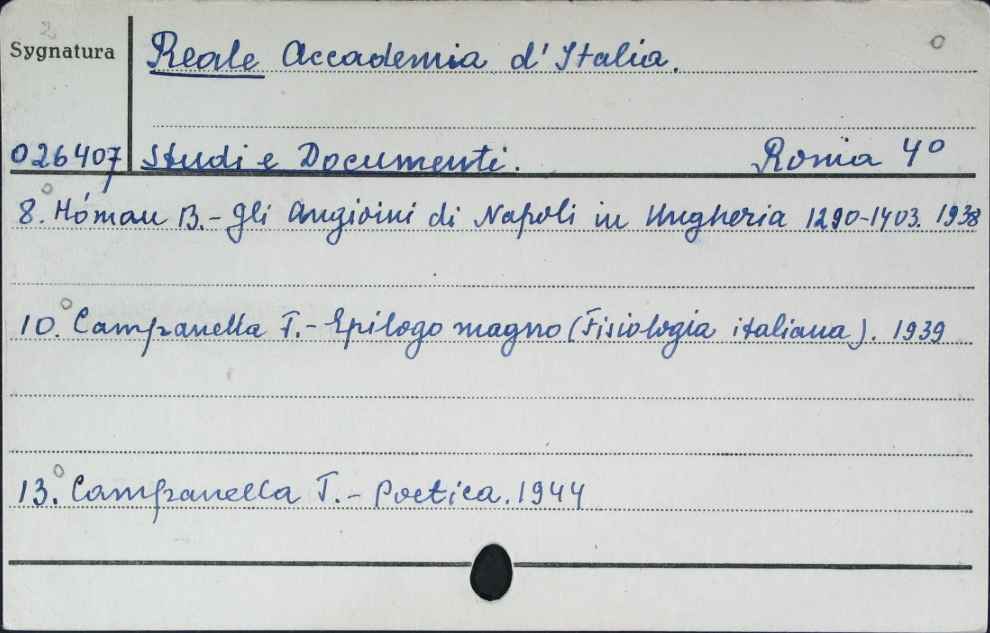 2
Sygnatura Reale Accademia d'Italia. o
026407 Studi e Documenti. Roma 4°
8. Hóman B. - Gli Angioini di Napoli in Ungheria 1290-1403. 1938
10. Campanella T. - Epilogo magno (Fisiologia italiana). 1939
13. Campanella T. - Poetica. 1944